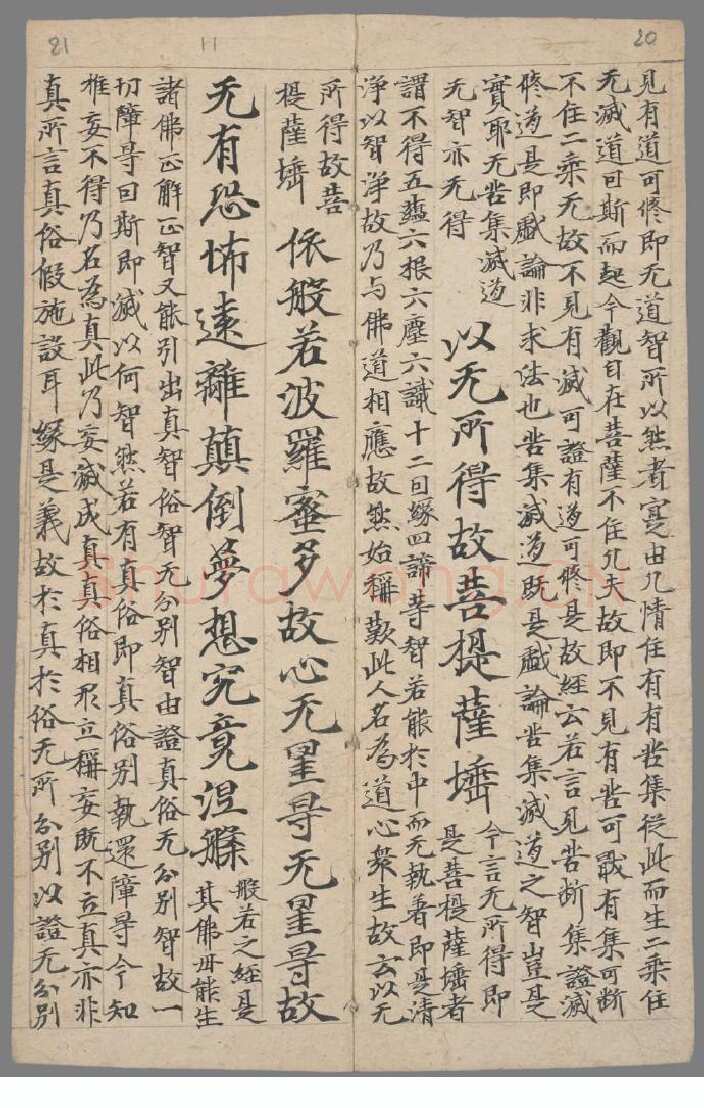 20
見有道可修即无道智所以然者寔由凡情住有有苦集從此而生二乘住
无滅道因斯而起今觀自在菩薩不住凡夫故即不見有苦可斷有集可斷
不住二乘无故不見有滅可證有道可修是故經云若言見苦斷集證滅
修道是即戲論非求法也苦集滅道既是戲論苦集滅道之智豈是
實耶无苦集滅道
无智亦无得
以无所得故菩提薩埵
今言无所得即
是菩提薩埵者
謂不得五蘊六根六塵六識十二因緣四諦等智若能於中而无執著即是清
淨以智淨故乃与佛道相應故然始稱歎此人名為道心衆生故云以无
所得故菩
提薩埵
依般若波羅蜜多故心无罣㝵无罣㝵故
无有恐怖遠離顛倒夢想究竟涅槃
般若之經是
其佛母能生
諸佛正解正智又能引出真智俗智无分別智由證真俗无分別智故一
切障㝵因斯即滅以何智然若有真俗即真俗別執還障㝵今知
推妄不得乃名為真此乃妄滅成真真俗相形立稱妄既不立真亦非
真所言真俗假施設耳緣是義故於真於俗无所分別以證无分別
11
21